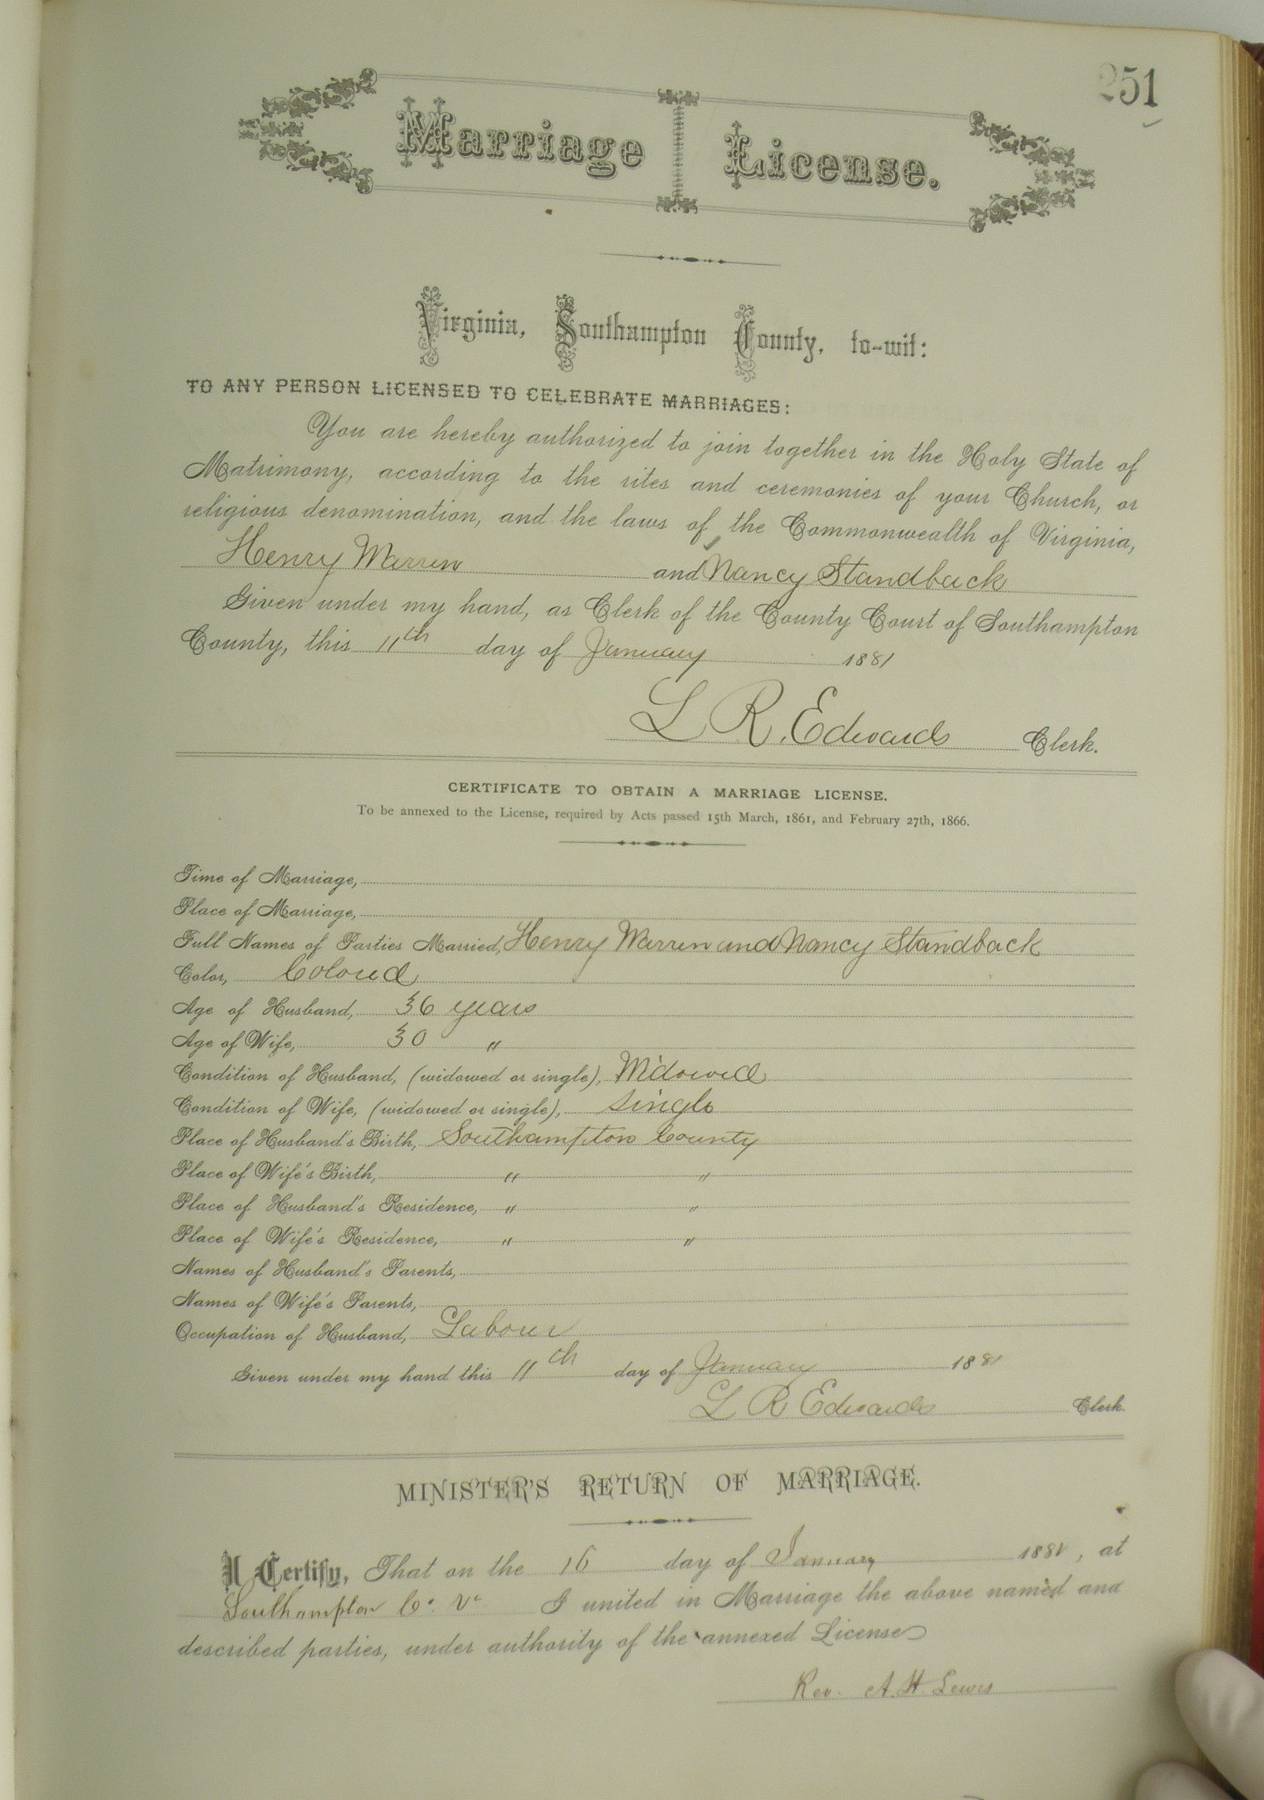 251
Marriage License.
Virginia, Southampton County, to-wit:
TO ANY PERSON LICENSED TO CELEBRATE MARRIAGES:
You are hereby authorized to join together in the Holy State of
Matrimony, according to the rites and ceremonies of your Church, or
religious denomination, and the laws of the Commonwealth of Virginia,
Henry Warren and Nancy Standback
Given under my hand, as Clerk of the County Court of Southampton
County, this 11th day of January 1881
L R. Edwards Clerk.
CERTIFICATE TO OBTAIN A MARRIAGE LICENSE.
To be annexed to the License, required by Acts passed 15th March, 1861, and February 27th, 1866.
Time of Marriage,
Place of Marriage,
Full Names of Parties Married, Henry Warren and Nancy Standback
Color, Colored
Age of Husband, 36 years
Age of Wife, 30 "
Condition of Husband, (widowed or single), Widowed
Condition of Wife, (widowed or single), Single
Place of Husband's Birth, Southampton County
Place of Wife's Birth, " "
Place of Husband's Residence, " "
Place of Wife's Residence, " "
Names of Husband's Parents,
Names of Wife's Parents,
Occupation of Husband, Laborer
Given under my hand this 11th day of January 1881
L R Edwards Clerk.
MINISTER'S RETURN OF MARRIAGE.
I Certify, That on the 16 day of January 1881, at
Southampton Co. Va I united in Marriage the above named and
described parties, under authority of the annexed License
Rev. A. H. Lewis